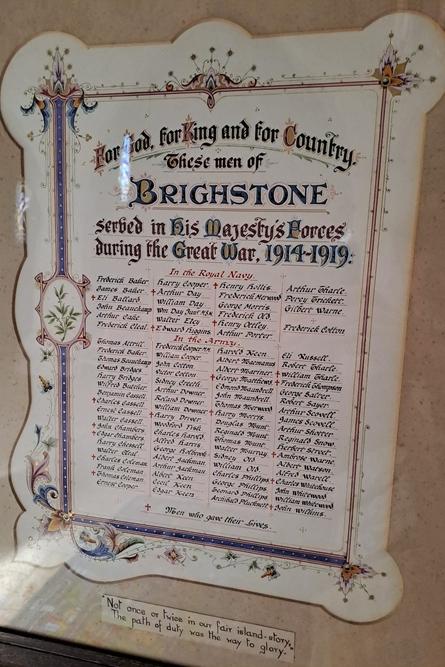 For God, for King and for Country.
These men of
BRIGHSTONE
served in His Majesty's Forces
during the Great War, 1914-1919:
In the Royal Navy.
Frederick Baker
James Baker
† Eli Ballard
John Beauchamp
Arthur Cake
Frederick Cleal
Harry Cooper
† Arthur Day
William Day
Walter Eley
† Edward Higgins
† Henry Hollis
Frederick Merwood
George Morris
Frederick Old
† Henry Ottley
Arthur Porter
Arthur Tharle
Percy Trickett
Gilbert Warne
Frederick Cotton
In the Army.
Thomas Attrill
Frederick Baker
Thomas Beauchamp
Edward Bridges
Harry Bridges
Wilfred Butcher
Benjamin Cassell
† Charles Cassell
Ernest Cassell
Walter Cassell
† John Chambers
Edgar Chambers
Harry Chessell
Walter Cleal
† Charles Coleman
Frank Coleman
† Thomas Coleman
Ernest Cooper
William Cooper
John Cotton
Peter Cotton
Sidney Creeth
Arthur Downer
Roland Downer
William Downer
† Harry Driver
Woodford Fisk
Charles Harold
Alfred Harris
George Holbrook
Albert Jackman
Arthur Jackman
Albert Keen
Cecil Keen
Edgar Keen
Harold Keen
Albert Mariner
† George Matthews
Edmond Maundrell
John Maundrell
Thomas Merwood
† Harry Morris
Douglas Munt
Reginald Munt
Thomas Munt
Walter Murray
Sidney Old
William Old
Charles Phillips
George Phillips
Leonard Phillips
Archibald Plucknett
Eli Russell
Robert Tharle
† William Tharle
† Frederick Thompson
George Salter
Robert Sayer
Arthur Scovell
James Scovell
Arthur Shotter
Reginald Snow
Herbert Street
† Ambrose Warne
Albert Watson
Alfred Warell
† Charles Whitehouse
John Whitewood
William Whitewood
† John Willins
† Men who gave their Lives.
Not once or twice in our fair island-story,
The path of duty was the way to glory.